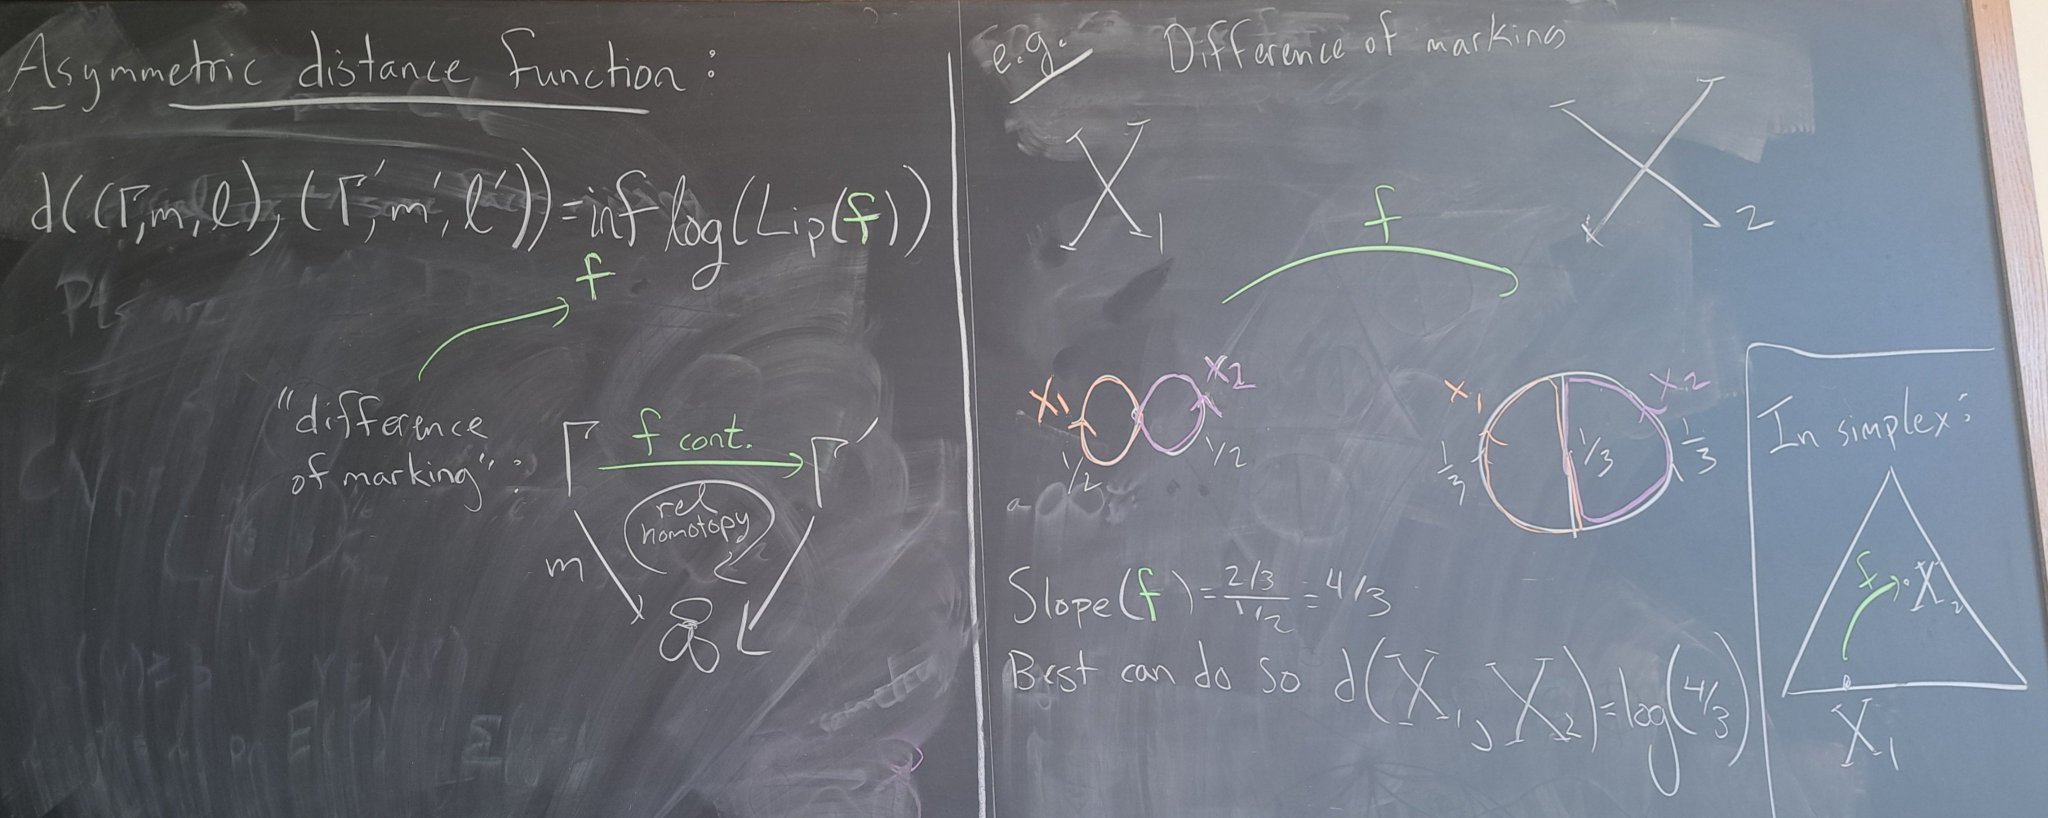 Asymmetric distance function:
d((Γ,m,l),(Γ',m',l'))=inf log(Lip(f))
f
Pts are
"difference
of marking":
Γ f cont. Γ'
rel
homotopy
m
e.g. Difference of marking
X₁
X₂
f
x₁ x₂
1/2 1/2
x₁ x₂
1/3 1/3 1/3
Slope(f)=(2/3)/(1/2)=4/3
Best can do so d(X₁,X₂)=log(4/3)
In simplex:
f X₂
X₁